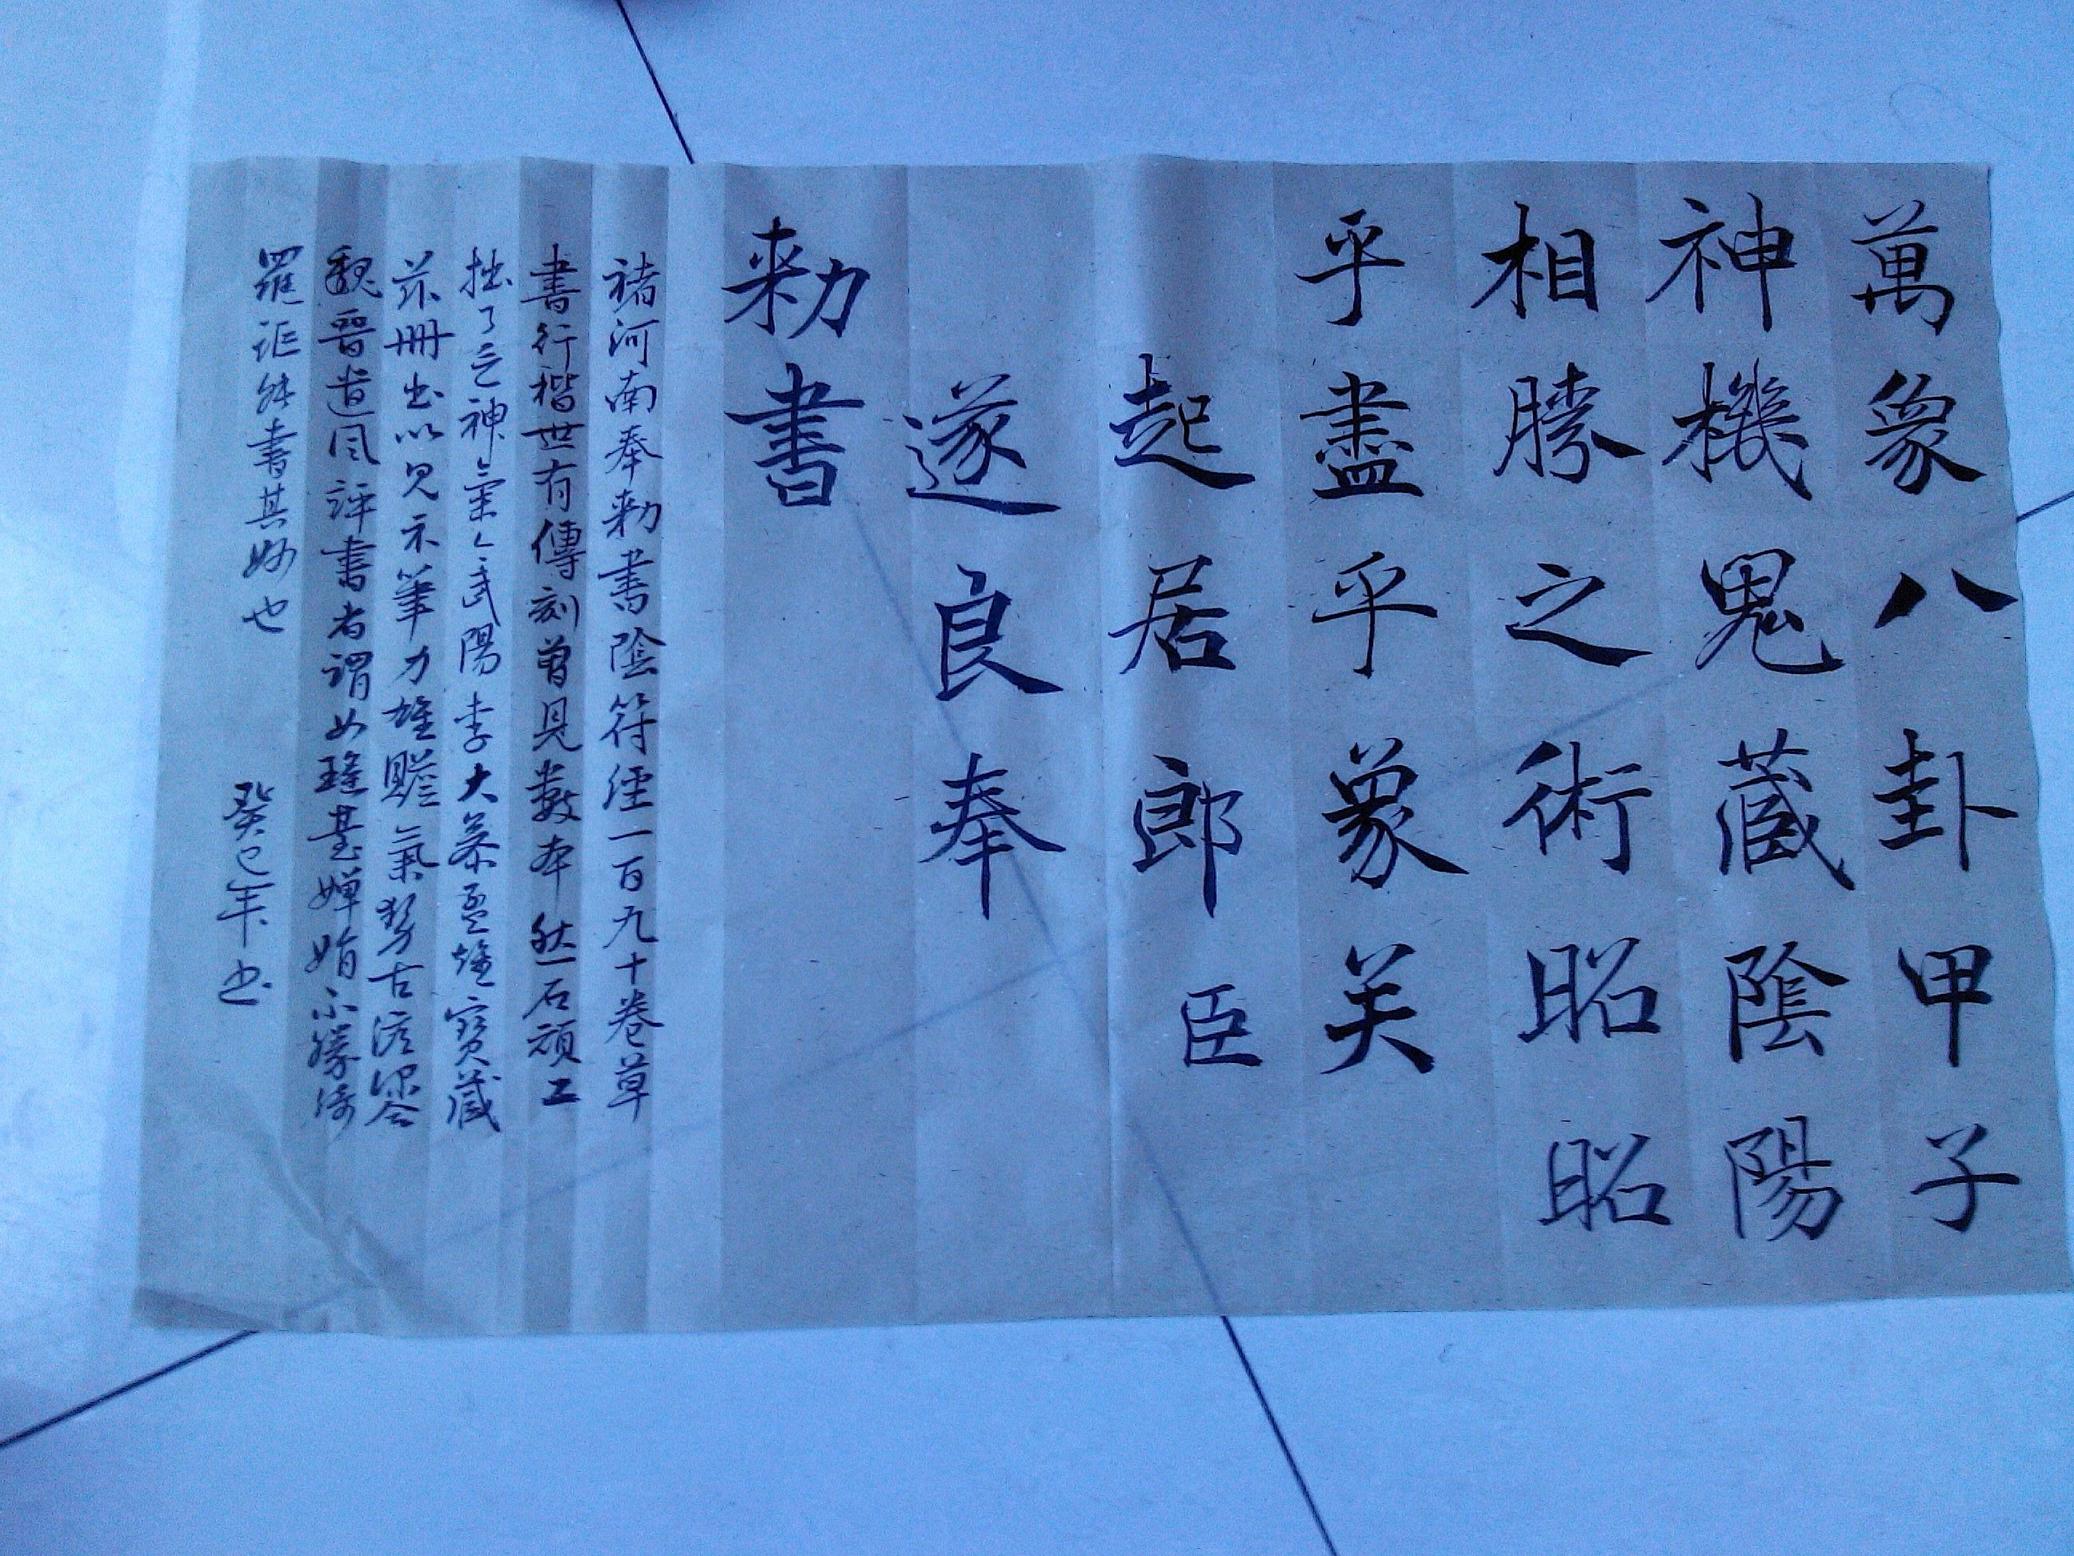 萬象八卦甲子
神機鬼藏陰陽
相勝之術昭昭
乎盡乎象矣
起居郎臣
遂良奉
勅書
褚河南奉勅書陰符經一百九十卷草
書行楷世有傳刻曾見數本然石頑工
拙了乏神氣今武陽李大参孟雄寶藏
茲冊出以見示筆力雄贍氣勢古淡深合
魏晉遺風評書者謂如瑤臺嬋娟不勝綺
羅詎能書其妙也
癸巳年书